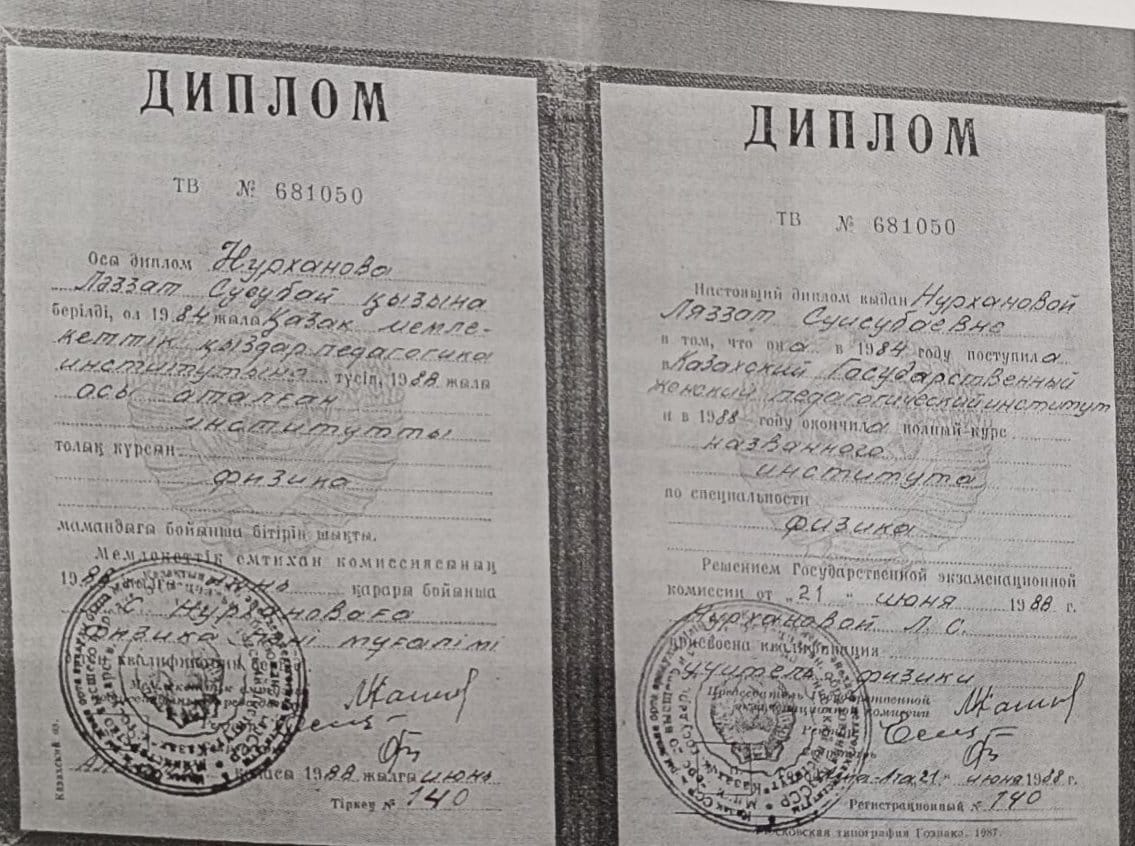 ДИПЛОМ
ТВ № 681050
Осы диплом Нурханова
Ләззат Сусубай қызына
берілді, ол 1984 жылы Қазақ мемле-
кеттік қыздар педагогика
институтына түсіп, 1988 жылы
осы аталған
институтты
толық курсын
физика
мамандығы бойынша бітіріп шықты.
Мемлекеттік емтихан комиссиясының
19 июнь қарары бойынша
С. Нурхановаға
физика пәні мұғалімі
квалификация
қаласы 1988 жылғы июнь
Тіркеу № 140
Казахский яз.
ДИПЛОМ
ТВ № 681050
Настоящий диплом выдан Нурхановой
Ляззат Суисубаевне
в том, что она в 1984 году поступила
в Казахский Государственный
женский педагогический институт
и в 1988 году окончила полный курс
названного
института
по специальности
физика
Решением Государственной экзаменационной
комиссии от „21" июня 1988 г.
Нурхановой Л. С.
присвоена квалификация
учитель физики
Председатель Государственной
экзаменационной комиссии
Ректор
Секретарь
21 „ июня 1988 г.
Регистрационный № 140
Московская типография Гознака. 1987.